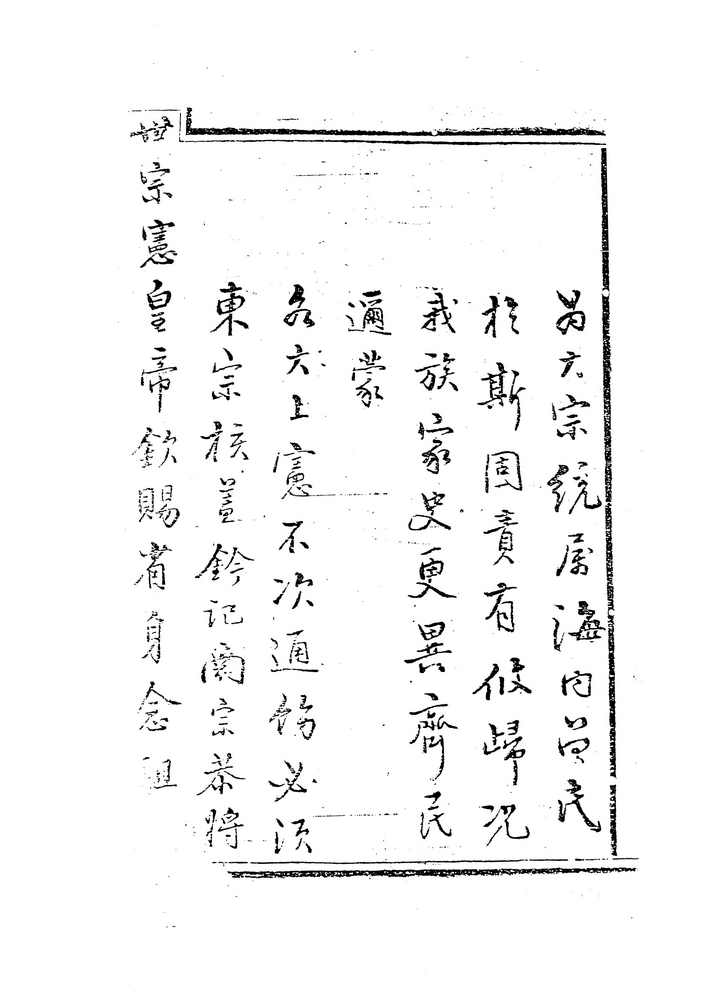 為大宗統屬海內曾民
於斯固責有攸歸況
我族家史更異齊民
邇蒙
各大上憲不次通飭必須
東宗核蓋鈐記閱宗恭將
世宗憲皇帝欽賜省身念祖